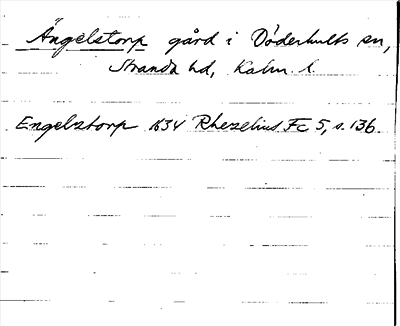 Ängelstorp gård i Döderhults sn,
Stranda hd, Kalm. l.
Engelstorp 1634 Rhezelius. Fc 5, s. 136.